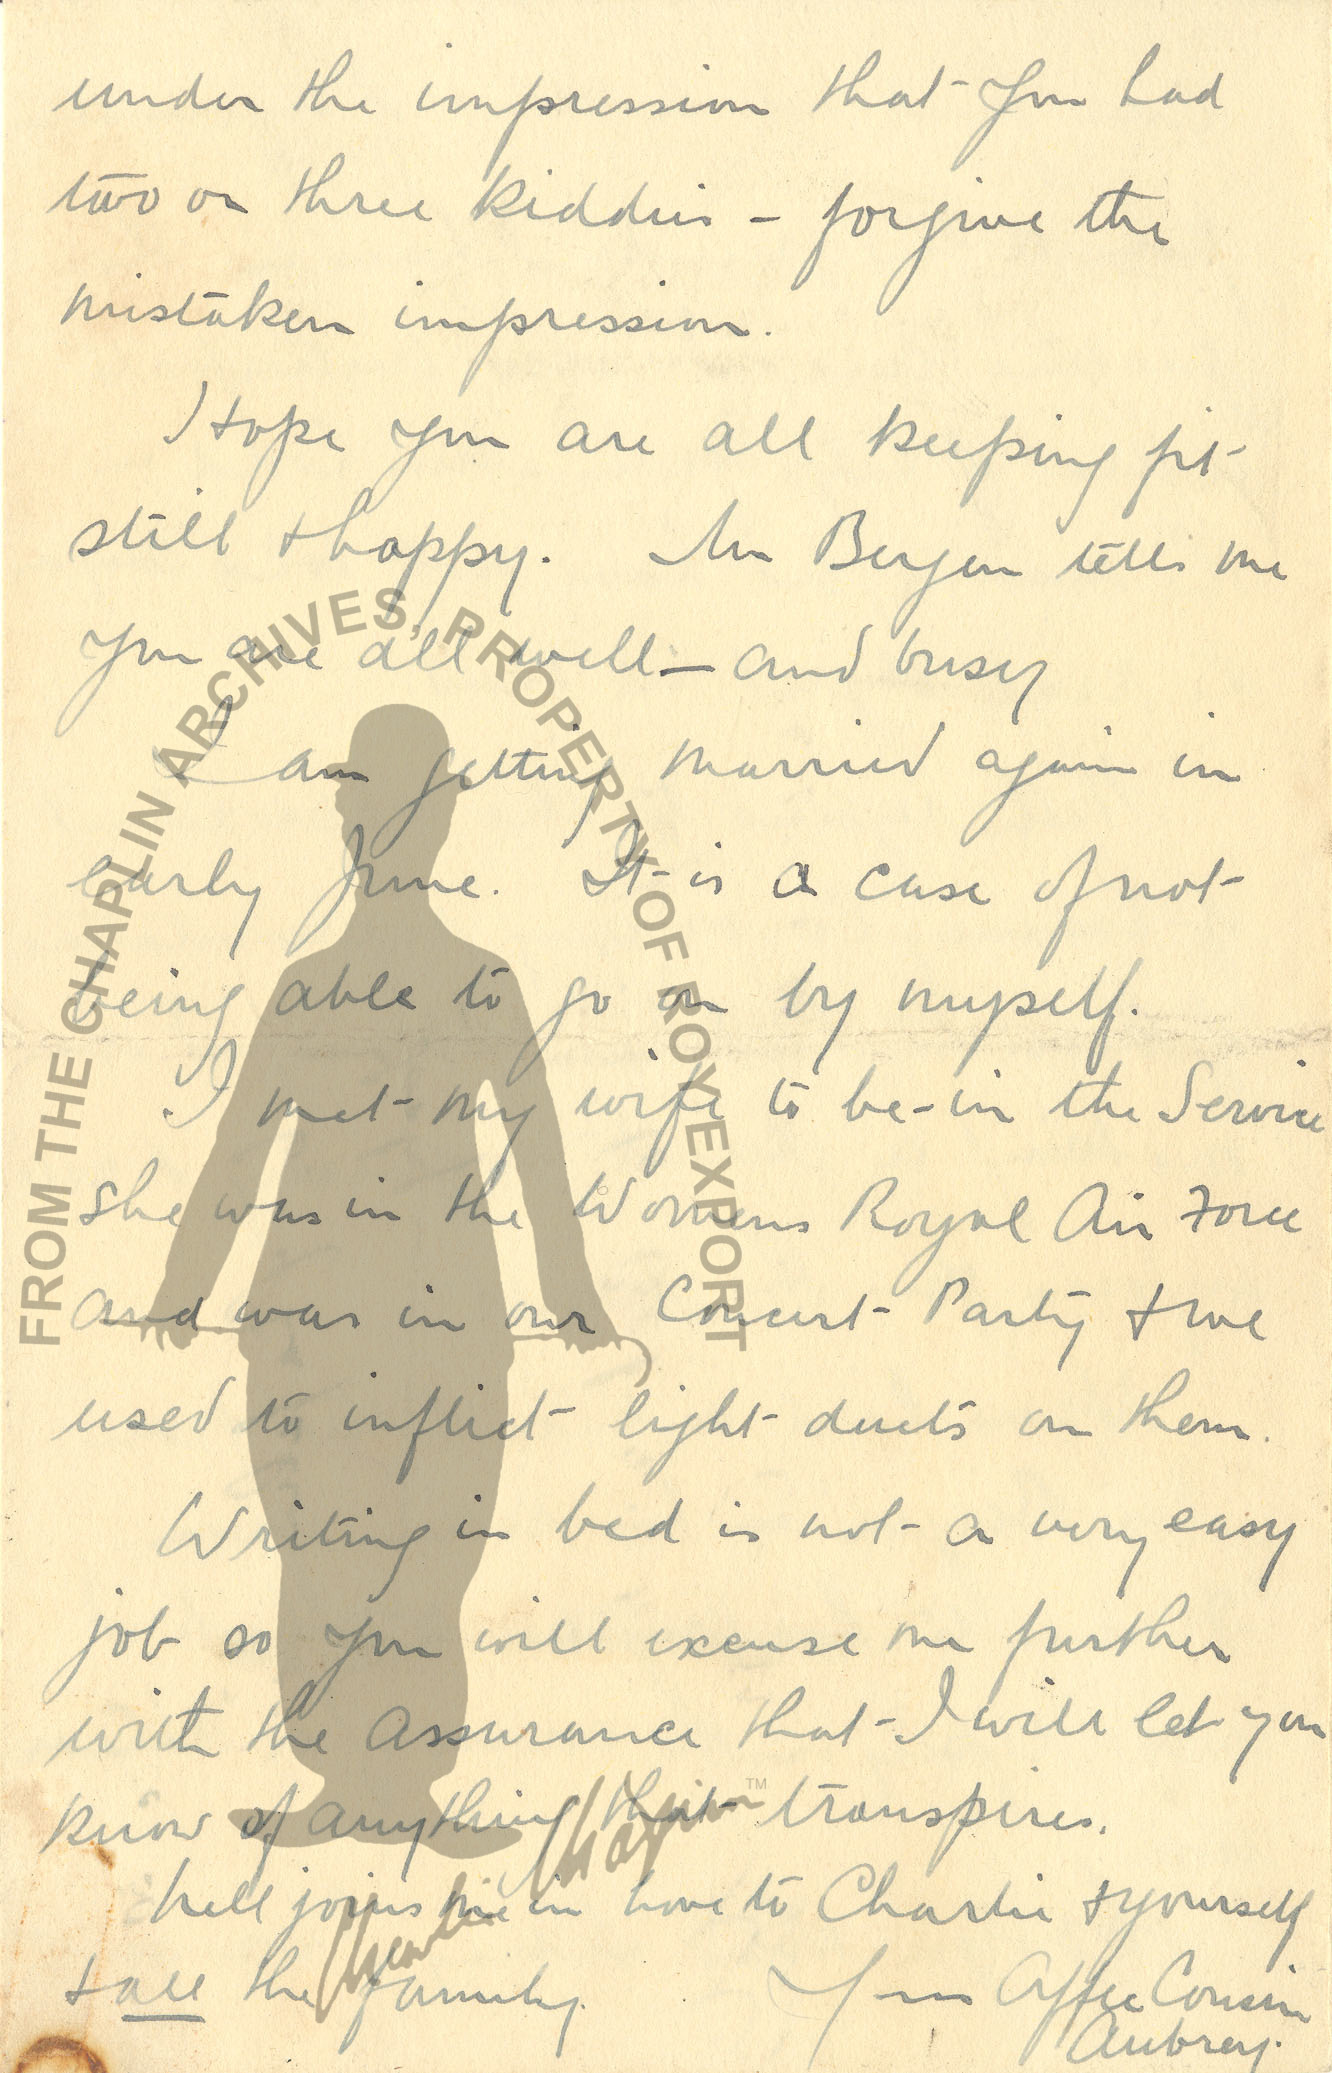 under the impression that you had
two or three kiddies – forgive the
mistaken impression.
Hope you are all keeping fit
still & happy. Mr Bergen tells me
you are all well – and busy
I am getting married again in
early June. It is a case of not
being able to go on by myself.
I met my wife to be in the Service
she was in the Womens Royal Air Force
and was in our Concert Party & we
used to inflict light duets on them.
Writing in bed is not a very easy
job so you will excuse me further
with the assurance that I will let you
know of anything that transpires.
Nell joins me in love to Charlie & yourself
& all the family.
Your Affec Cousin
Aubrey.
FROM THE CHAPLIN ARCHIVES, PROPERTY OF ROY EXPORT
Charlie Chaplin™